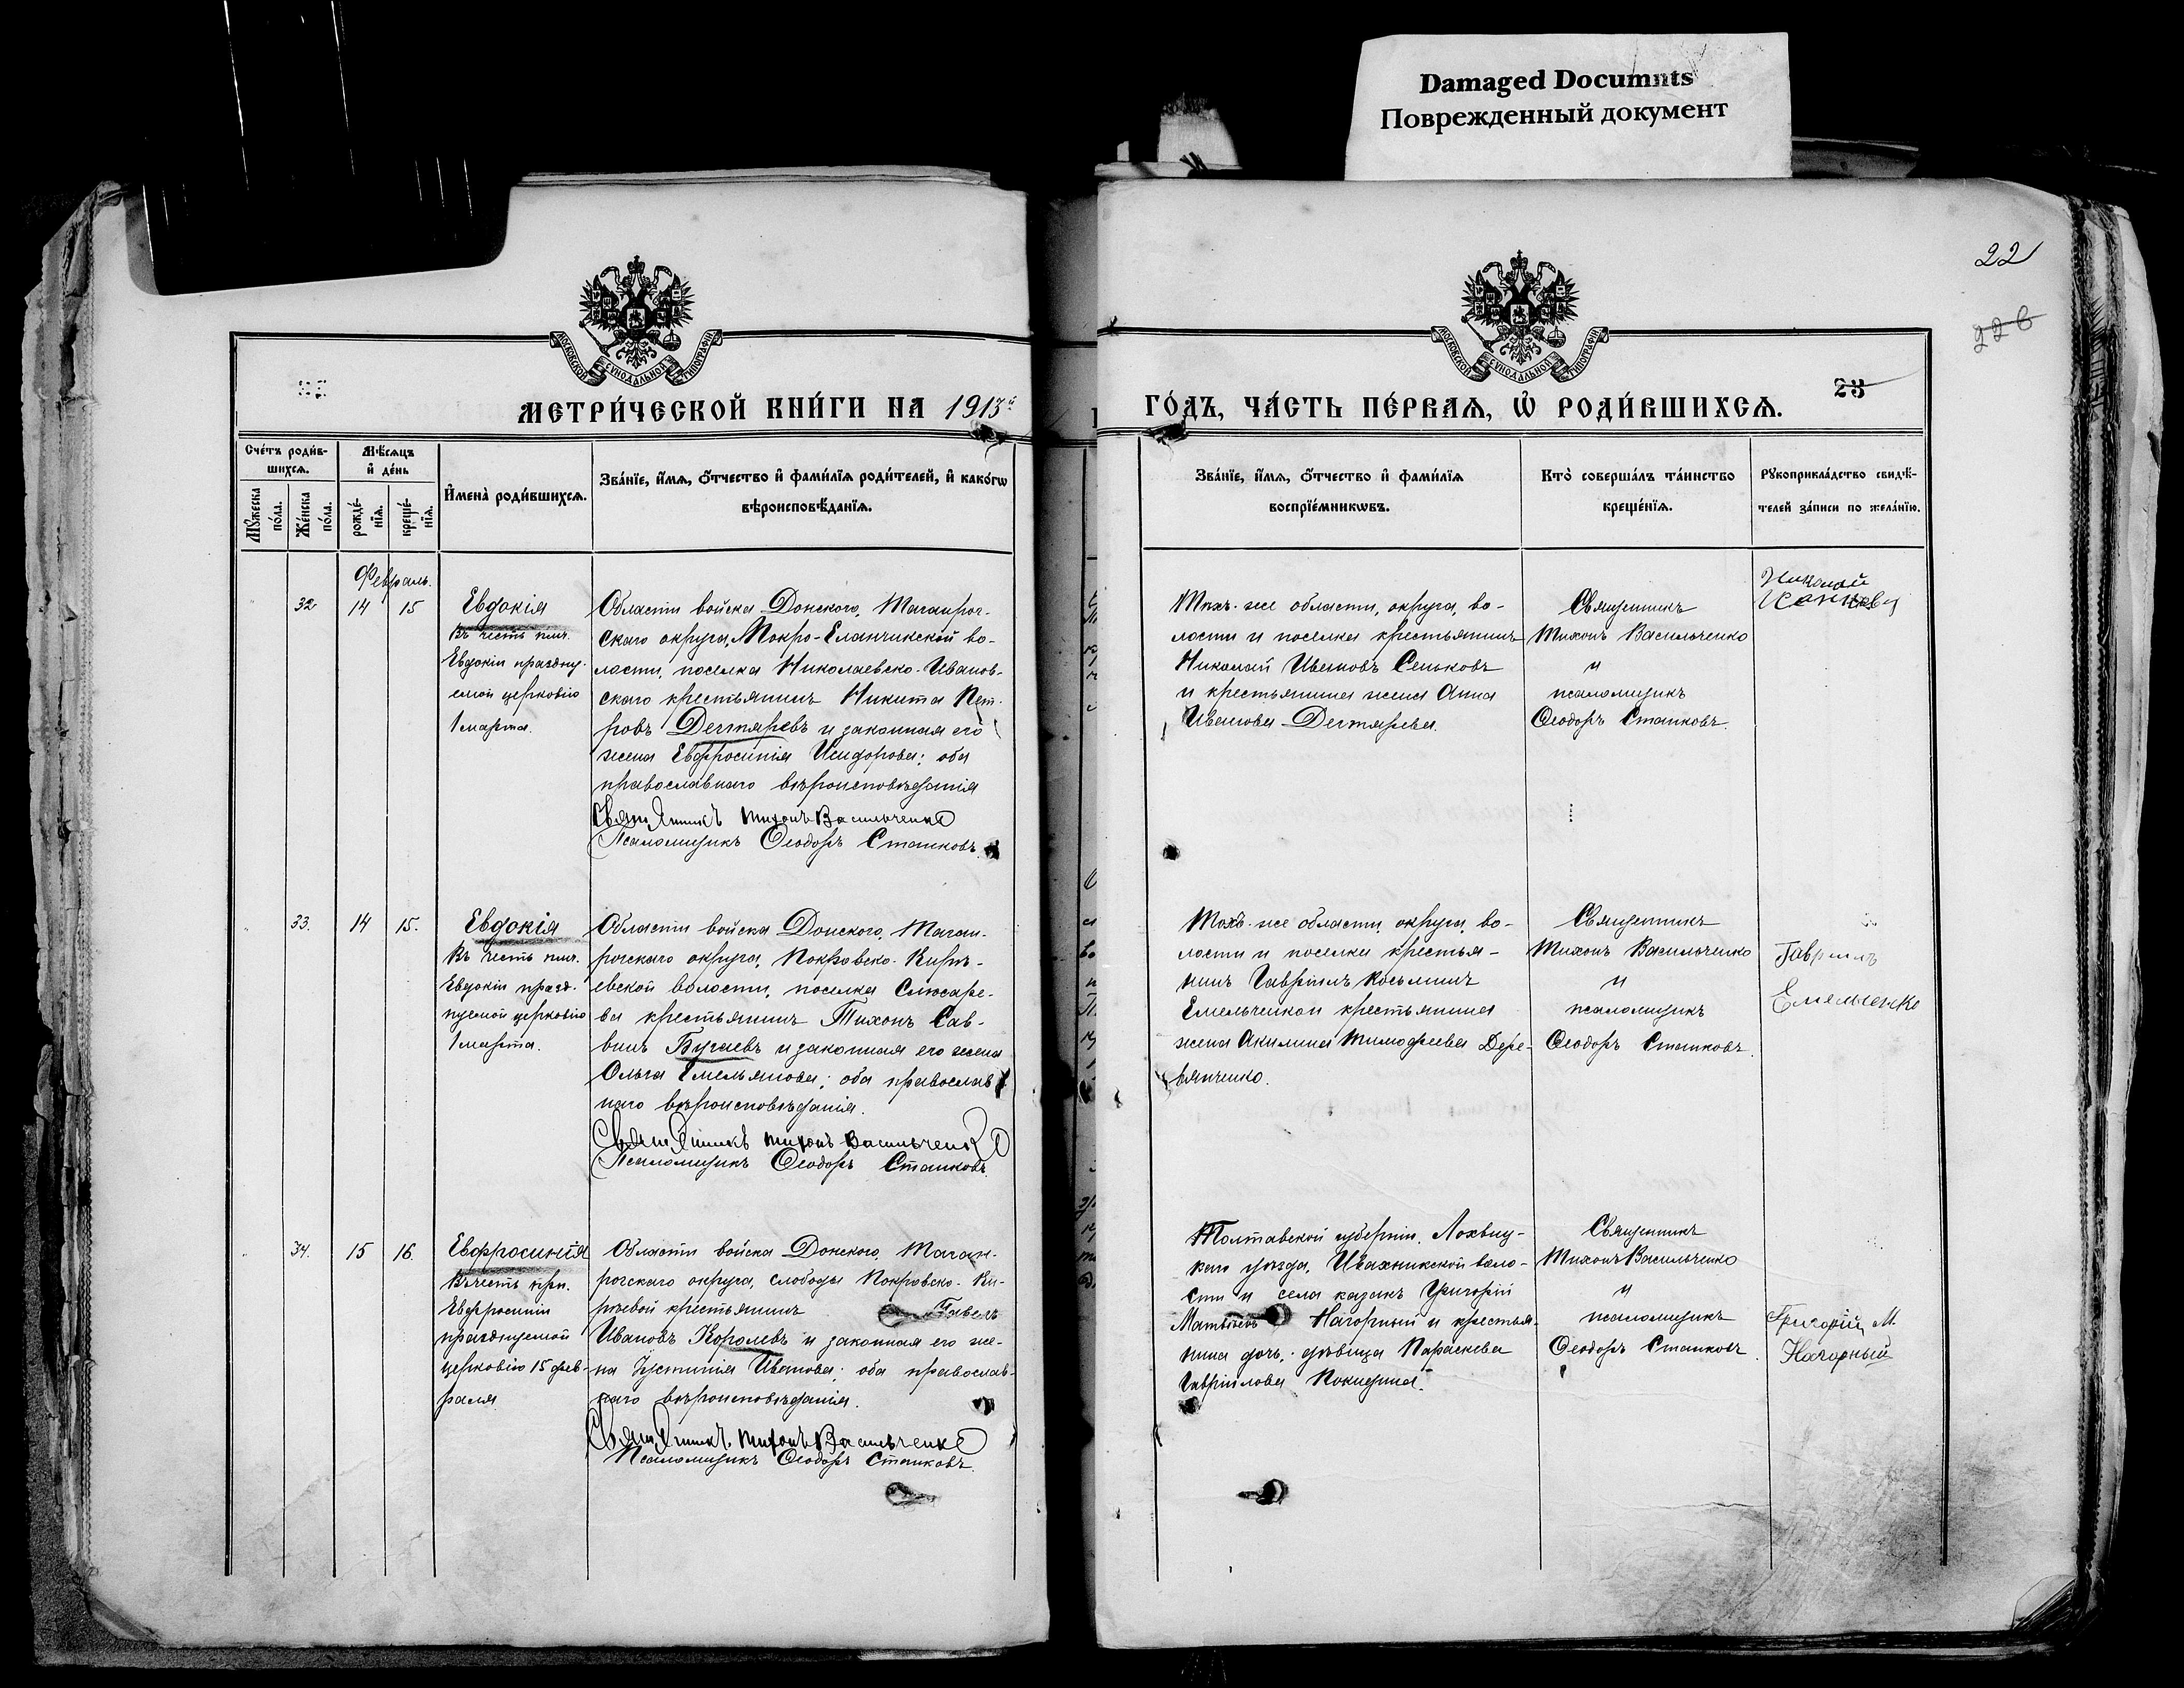 Damaged Documnts
Поврежденный документ
22
226
23
МОСКОВСКОЙ СѴНОДАЛЬНОЙ ТИПОГРАФІИ
МОСКОВСКОЙ СѴНОДАЛЬНОЙ ТИПОГРАФІИ
МЕТРИ́ЧЕСКОЙ КНИ́ГИ НА 1913й
ГО́ДЪ, ЧА́СТЬ ПЕ́РВАѦ, Ѽ РОДИ́ВШИХСѦ.
Сче́тъ роди́в-
шихсѧ.
Мѣ́сѧцъ
и҆ де́нь
Мꙋ́жеска по́ла.
Же́нска по́ла.
рожде́-нїѧ.
креще́-нїѧ.
И҆мена̀ роди́вшихсѧ.
Зва́нїе, и҆́мѧ, ѻ҆́тчество и҆ фами́лїѧ роди́телей, и҆ како́гѡ
вѣроисповѣ́данїѧ.
Зва́нїе, и҆́мѧ, ѻ҆́тчество и҆ фами́лїѧ
воспрїе́мникѡвъ.
Кто̀ соверша́лъ та́инство
креще́нїѧ.
Рꙋкоприкла́дство свидѣ́-
телей за́писи по жела́нїю.
Февраль.
32
14
15
Евдокія
Въ честь пмч.
Евдокіи праздну-
емой церковію
1 марта.
Области войска Донского, Таганрог-
скаго округа, Мокро-Еланчикской во-
лости, поселка Николаевско-Иванов-
скаго крестьянинъ Никита Пет-
ровъ Дегтяревъ и законная его
жена Евфросинія Исидорова; оба
православнаго вѣроисповѣданія
Священникъ Тихонъ Васильченко
Псаломщикъ Ѳеодоръ Станковъ.
Тѣхъ-же области, округа, во-
лости и поселка крестьянинъ
Николай Ивановъ Сеньковъ
и крестьянина жена Анна
Иванова Дегтярева.
Священникъ
Тихонъ Васильченко
и
псаломщикъ
Ѳеодоръ Станковъ.
Николай
33.
14
15.
Евдокія
Въ честь пмч.
Евдокіи празд-
нуемой церковію
1 марта.
Области войска Донского, Таган-
рогскаго округа, Покровско-Кирѣ-
евской волости, поселка Слюсаре-
ва крестьянинъ Тихонъ Сав-
винъ Бугаевъ и законная его жена
Ольга Емельянова; оба православ
наго вѣроисповѣданія.
Священникъ Тихонъ Васильченко
Псаломщикъ Ѳеодоръ Станковъ.
Тѣхъ-же области, округа, во-
лости и поселка крестья-
нинъ Гавріилъ Косьминъ
Емельченкои крестьянина
жена Акилина Тимофеева Дере-
вянченко.
Священникъ
Тихонъ Васильченко
и
псаломщикъ
Ѳеодоръ Станковъ.
Гавриилъ
Емельченко
34.
15
16.
Евфросинія
Въ честь прп.
Евфросиніи
празднуемой
церковію 15 фев-
раля
Области войска Донского, Таган-
рогскаго округа, слободы Покровско-Ки-
рѣевой крестьянинъ Павелъ
Ивановъ Королевъ и законная его же-
на Іустинія Иванова; оба православ-
наго вѣроисповѣданія.
Священникъ Тихонъ Васильченко
Псаломщикъ Ѳеодоръ Станковъ.
Полтавской губерніи, Лохвиц-
каго уѣзда, Ивахникской воло-
сти и села казакъ Григорій
Матвѣевъ Нагорный и крестья-
нина дочь, дѣвица Параскева
Гавріилова
Священникъ
Тихонъ Васильченко
и
псаломщикъ
Ѳеодоръ Станковъ.
Григорій М.
Нагорный